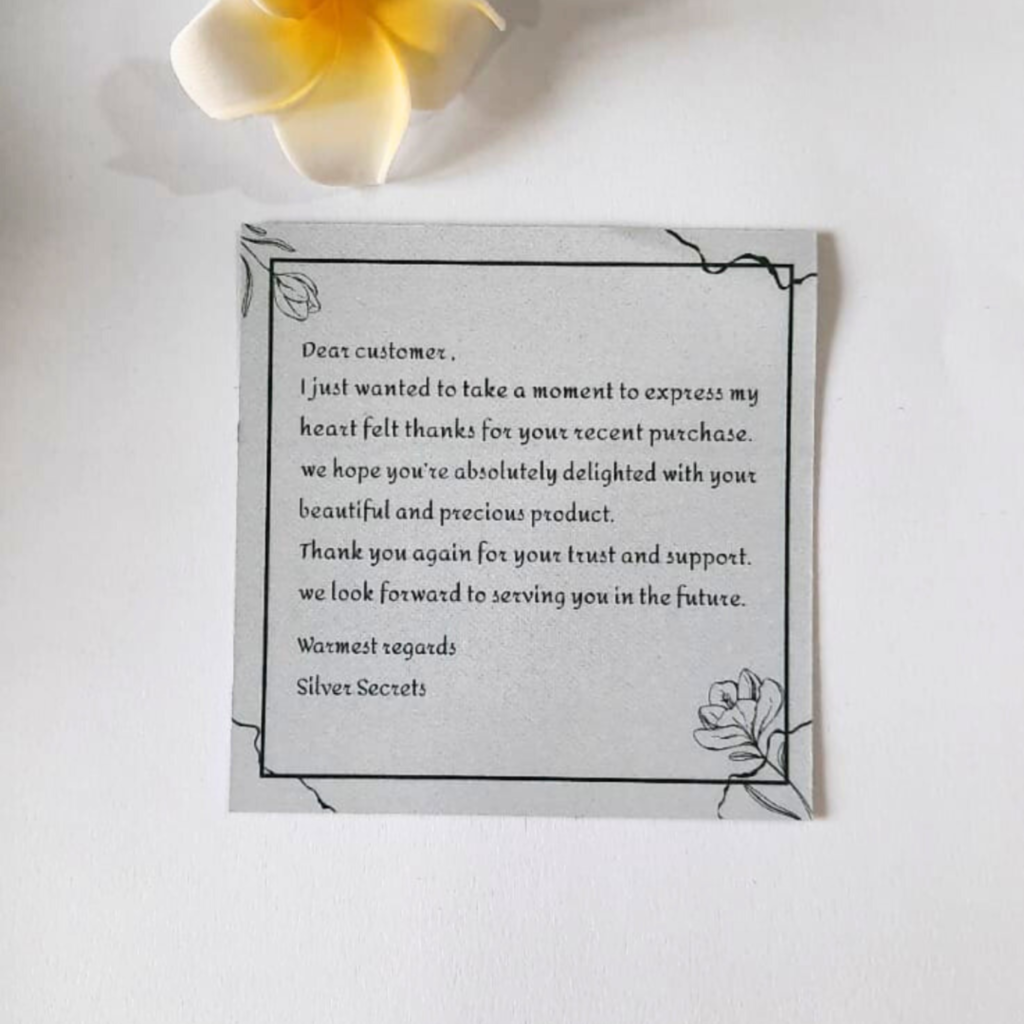 Dear customer,
I just wanted to take a moment to express my
heart felt thanks for your recent purchase.
we hope you're absolutely delighted with your
beautiful and precious product.
Thank you again for your trust and support.
we look forward to serving you in the future.
Warmest regards
Silver Secrets